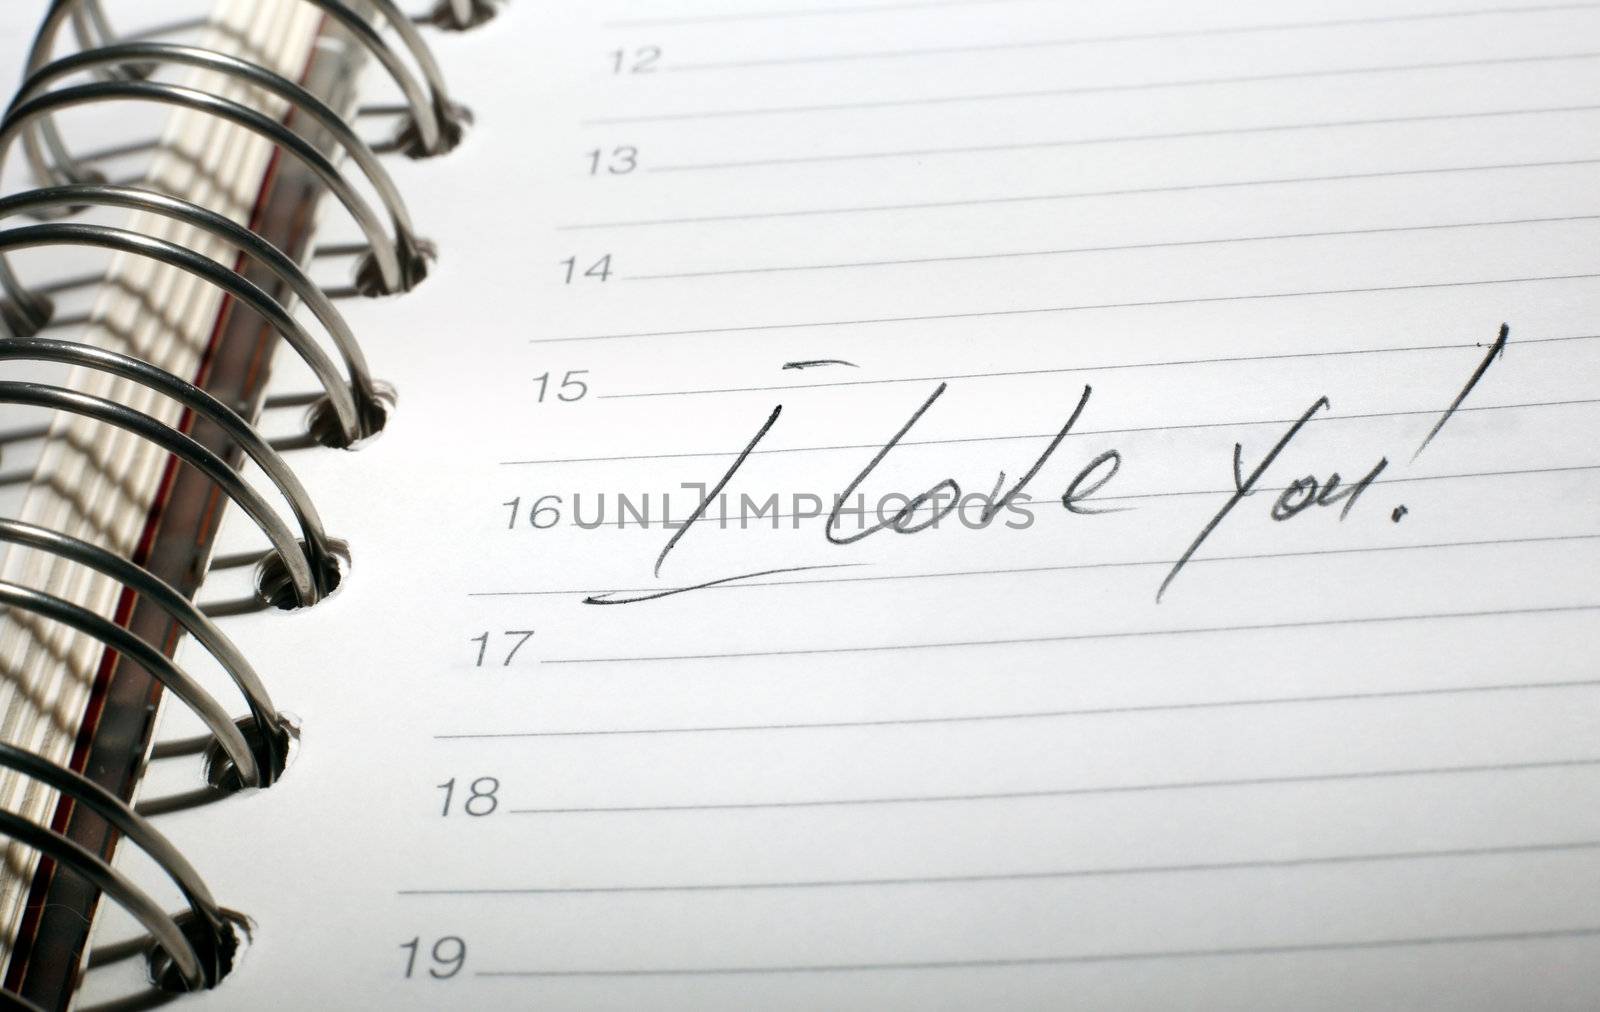 12
13
14
15
I love you!
16
UNLIMPHOTOS
17
18
19